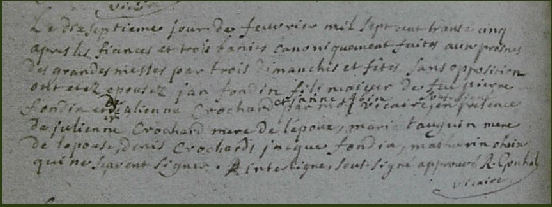 Le dix septieme jour de feuvrier mil sept cent trante cinq
apres les fiances et trois banies canoniquement faites aux prosnes
des grandes messes par trois dimanches et fêtes sans opposition
ont etez epousez jan fondin fils majeur de feu pierre
fondin et julienne Crochard par moy vicaire en presence
de julienne Crochard mere de lepoux, marie mere
de lepouse, denis Crochard, jacque fondin, mathurin
qui ne sçavent signer. Interligne sous signé approuvé R.
vicaire